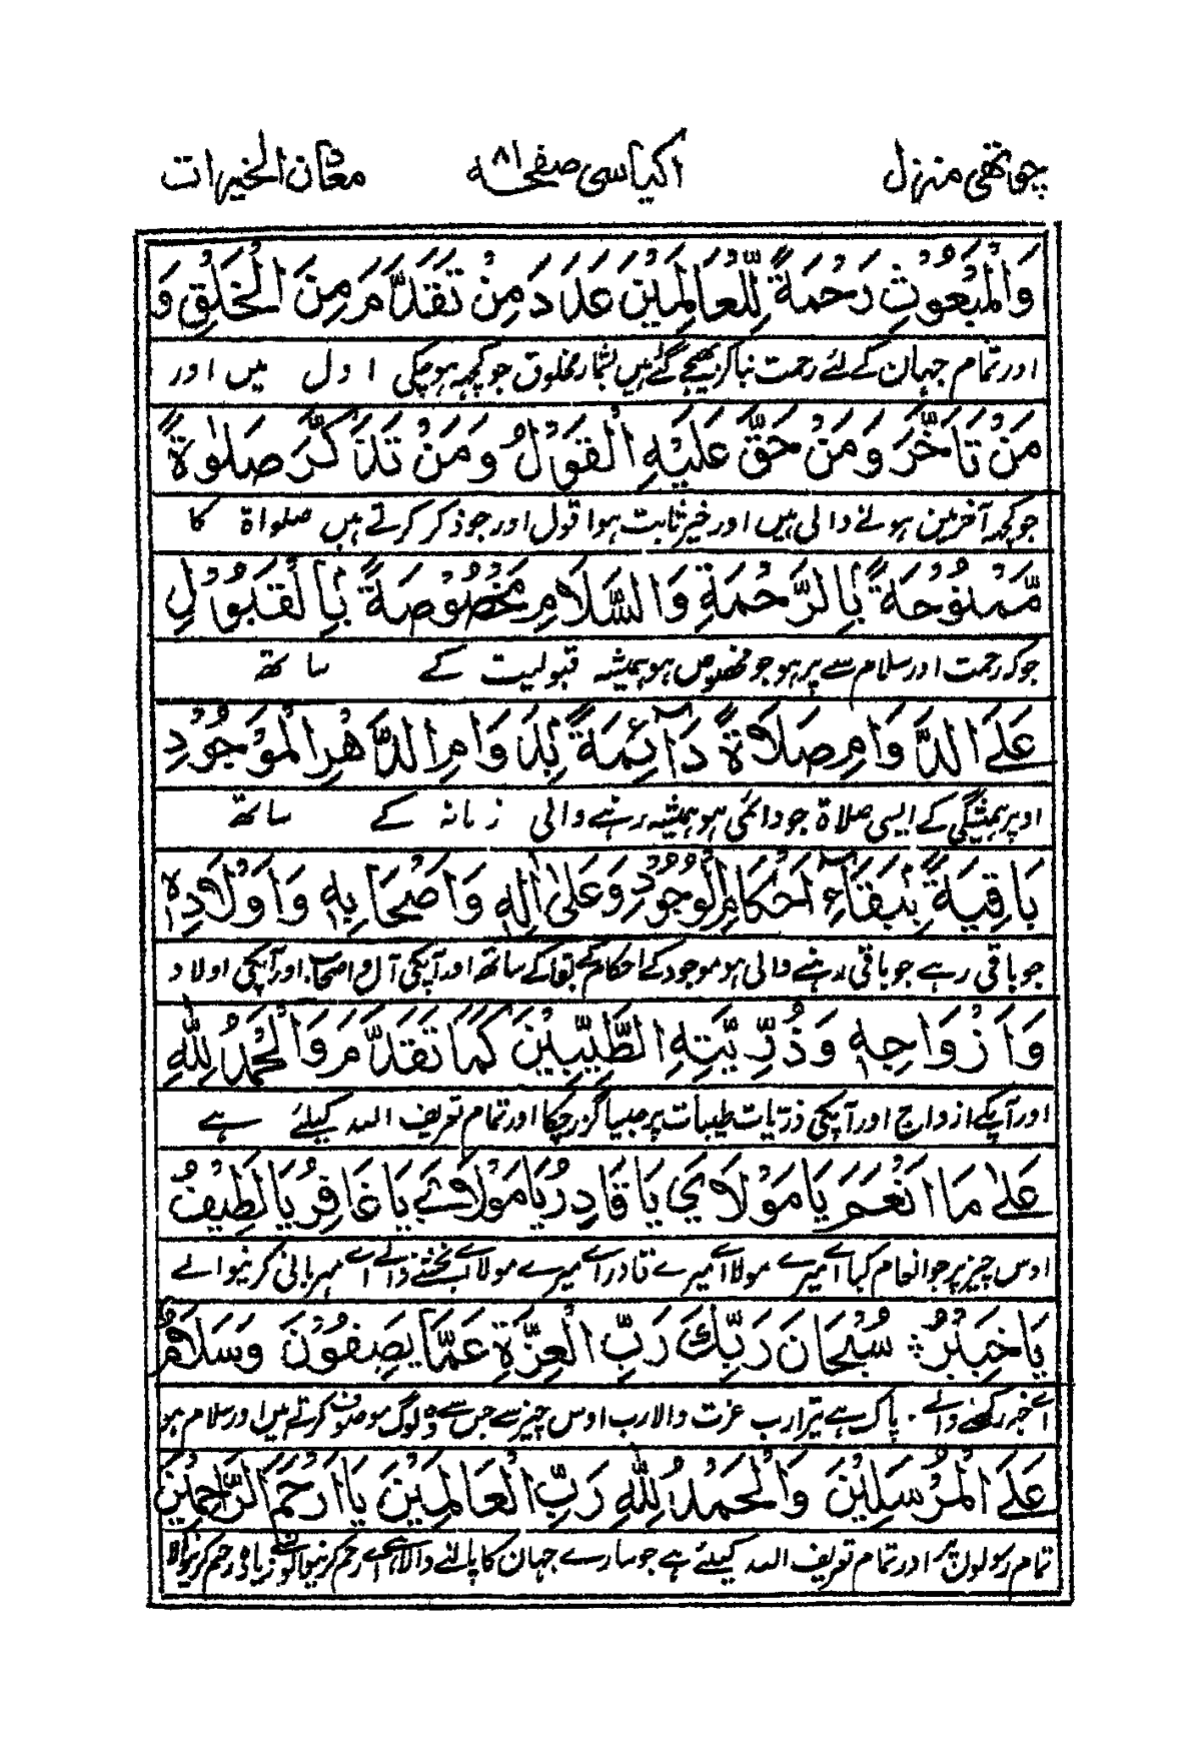 چوتھی منزل اکیاسی صفحہ ۸۱ معدن الخیرات
وَالْمَبْعُوْثِ رَحْمَةً لِّلْعَالَمِيْنَ عَدَدَ مَنْ تَقَدَّمَ مِنَ الْخَلْقِ وَ
اور تمام جہان کے لئے رحمت بناکر بھیجے گئے ہیں بشمار مخلوق جو کچھ ہوچکی اول میں اور
مَنْ تَاَخَّرَ وَمَنْ حَقَّ عَلَيْهِ الْقَوْلُ وَمَنْ تَذَكَّرَ صَلٰوةً
جو کچھ آخر مین ہونے والی ہیں اور خیر ثابت ہوا قول اور جو ذکر کرتے ہیں صلواة کا
مَّمْنُوْحَةً بِالرَّحْمَةِ وَالسَّلَامِ مَخْصُوْصَةً بِالْقَبُوْلِ
جو کہ رحمت اور سلام سے پر ہو جو مخصوص ہو ہمیشہ قبولیت کے ساتھ
عَلَى الدَّوَامِ صَلَاةً دَآئِمَةً بِدَوَامِ الدَّهْرِ الْمَوْجُوْدِ
اوپر ہمیشگی کے ایسی صلاة جو دائمی ہو ہمیشہ رہنے والی زمانہ کے ساتھ
بَاقِيَةً بِبَقَآءِ اَحْكَامِ الْوُجُوْدِ وَعَلىٰ اٰلِهٖ وَاَصْحَابِهٖ وَاَوْلَادِهٖ
جو باقی رہے جو باقی رہنے والی ہو موجود کے احکام کے بقا کے ساتھ اور آپکی آل و اصحاب اور آپکی اولاد
وَاَزْوَاجِهٖ وَذُرِّيَّتِهِ الطَّيِّبِيْنَ كَمَا تَقَدَّمَ وَالْحَمْدُ لِلّٰهِ
اور آپکے ازواج اور آپکی ذریات طیبات پر جیسا گزر چکا اور تمام تعریف اللہ کیلئے ہے
عَلىٰ مَا اَنْعَمَ يَا مَوْلَايَ يَا قَادِرُ يَا مَوْلَائِي يَا غَافِرُ يَا لَطِيْفُ
اوس چیز پر جو انعام کیا اے میرے مولا اے میرے قادر اے میرے مولا اے بخشنے والے اے مہربانی کرنیوالے
يَا خَبِيْرُ سُبْحَانَ رَبِّكَ رَبِّ الْعِزَّةِ عَمَّا يَصِفُوْنَ وَسَلَامٌ
اے خبر رکھنے والے۔ پاک ہے تیرا رب عزت والا رب اوس چیز سے جس سے وہ لوگ موصوف کرتے ہیں اور سلام ہو
عَلَى الْمُرْسَلِيْنَ وَالْحَمْدُ لِلّٰهِ رَبِّ الْعَالَمِيْنَ يَا اَرْحَمَ الرَّاحِمِيْنَ
تمام رسولوں پر اور تمام تعریف اللہ کیلئے ہے جو سارے جہان کا پالنے والا ہے اے رحم کرنیوالوں زیادہ رحم کرنیوالا